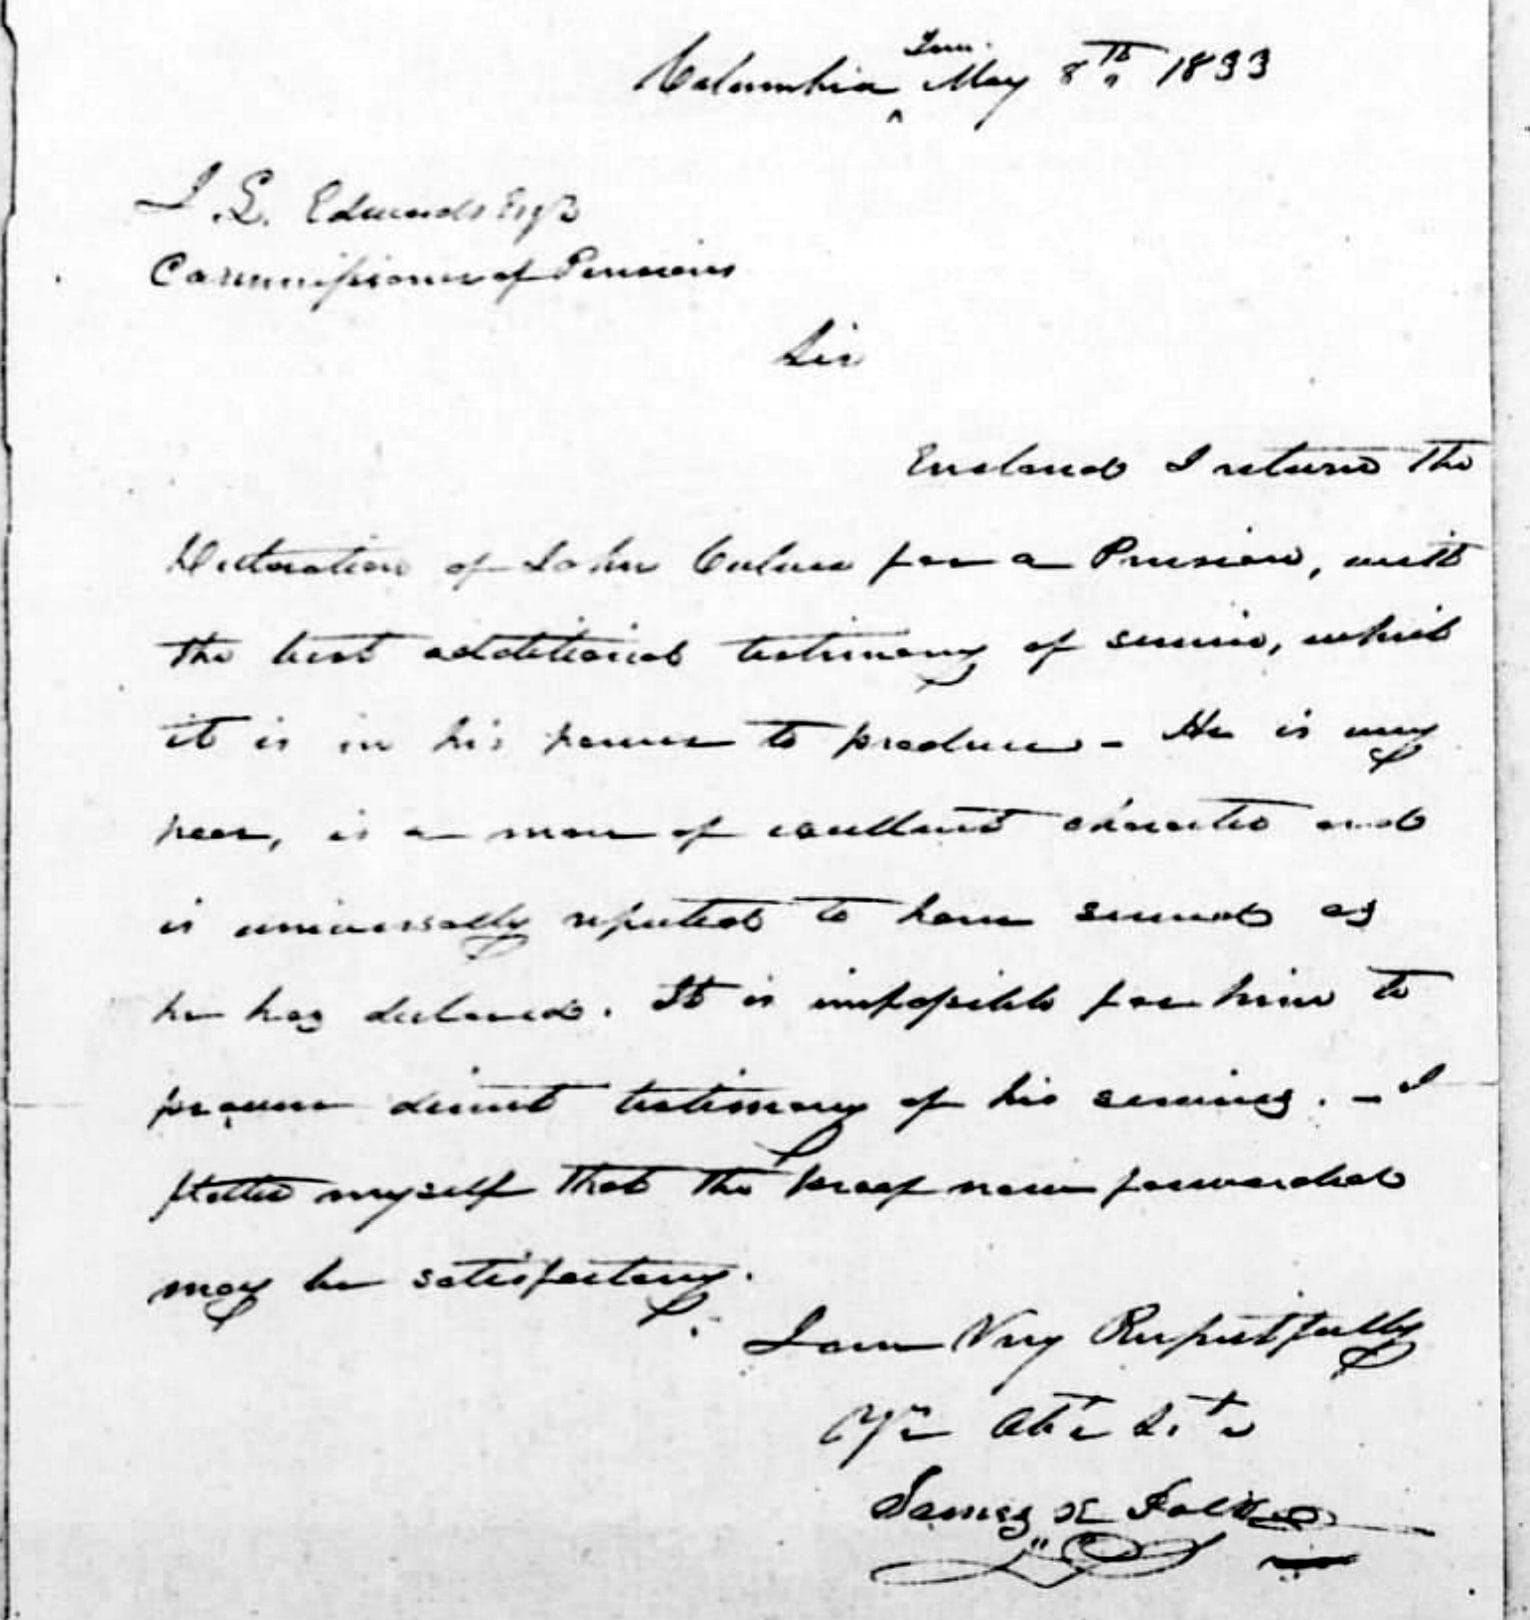 Columbia Tenn. May 8th 1833
J. L. Edwards Esqr
Commissioner of Pensions
Sir
Enclosed I return the
Declaration of John for a Pension, with
the best additional testimony of service, which
it is in his power to produce - He is very
poor, is a man of excellent character and
is universally reputed to have served as
he has declared. It is impossible for him to
procure direct testimony of his services. - I
flatter myself that the proof now forwarded
may be satisfactory.
I am Very Respectfully
Yr. Obt. Svt.
James K Polk